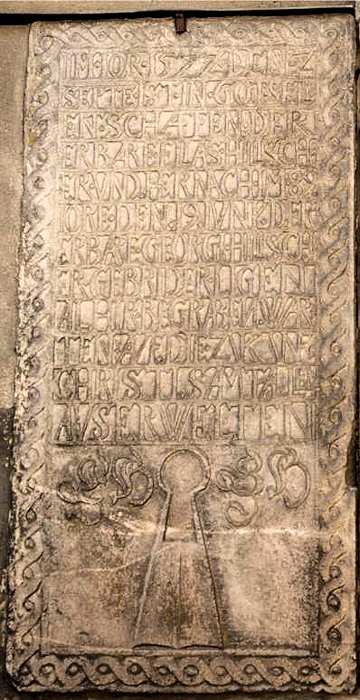 IM IOR · 1577 DEN Z
SEPTE IST · IN · GOT SEL
EN : SCHAFEN DER
ERBARE ELAS HILSCH
ER · VND · HERNACH IM · 8
IORE · DEN · 19 · IVNI · DER
ERBARE GEORG HILSCH
ER GEBRIDER LIGEN
ALHIR BEGRABEN WAR
TEN AVF DIE ZVKVNF
CHRISTI SAMT ALLE
AVSERWELTEN
E H G H